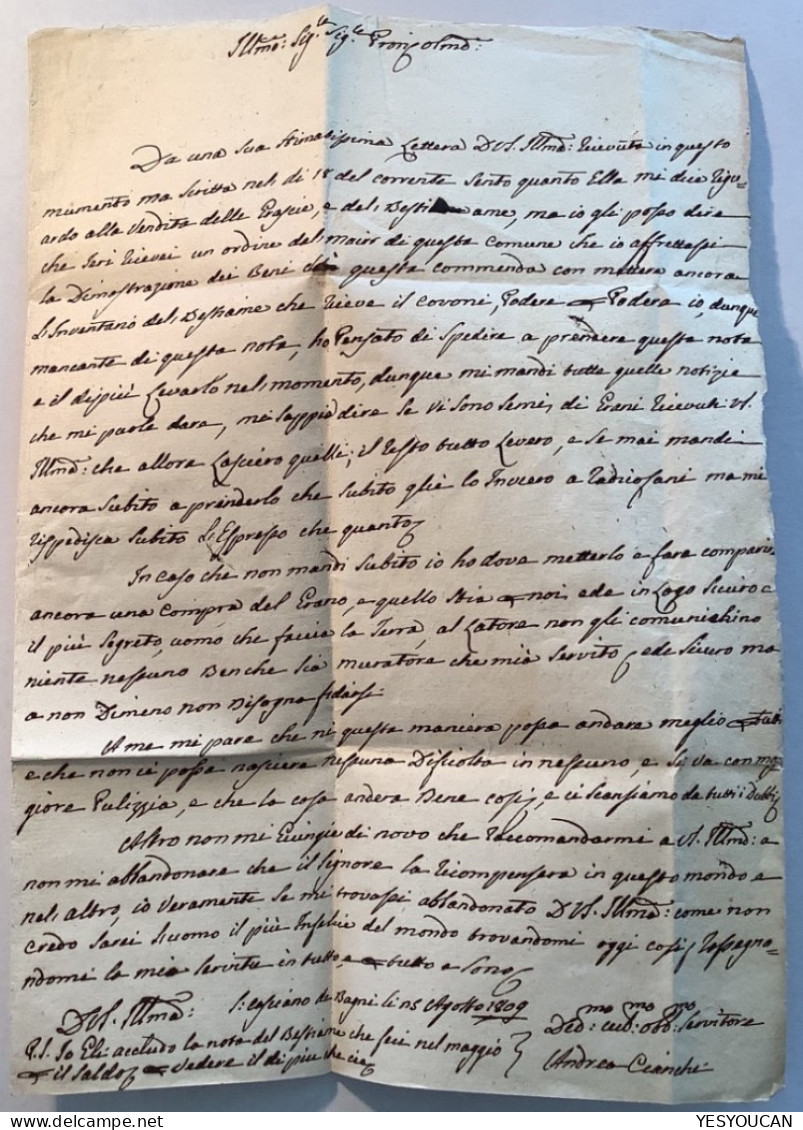 Illmo: Sig.re Sig.re Pron: Colmo:
Da una sua stimatissima Lettera DVS. Illma: ricevuta in questo
mumento ma scritta nel di 18 del corrente sento quanto Ella mi dice rigu-
ardo alla vendita delle Grascie, e del Bestiame, ma io gli posso dire
che Ieri ricevei un ordine del mairr di questa Comune che io affrettassi
la Dimostrazione dei Beni di questa commenda con mettere ancora
L'Inventario del Bestiame che rieve il covoni, Podere e Podera io dunque
mancante di questa nota, ho Pensato di spedire a prendere questa nota
e il dipiù Levarlo nel momento, dunque mi mandi tutte quelle notizie
che mi parle dare, mi sappia dire se vi sono semi, di Grani ricevuti VS.
Illma: che allora Lascierò quelli; il resto tutto Levero, e se mai mandi
ancora subito a prenderlo che subito glie lo Invierò a Radicofani ma mi
rispedisca subito L'Espresso che quanto
In caso che non mandi subito io ho dove metterlo e fare comparir
ancora una compra del Grano, e quello stia a noi, ed e in Logo sicuro e
il più segreto, uomo che faccia la Terra, al Latore non gli comunichino
niente nessuno Benche sia muratore che mia servito ed e sicuro ma
a non Dimeno non Bisogna fidarsi:
A me mi pare che ni questa maniera possa andare meglio tutti
e che non ci possa nascere nessuna Dificolta in nessuno, e si va con mag
giore Pulizzia, e che la cosa anderà Bene così, e ci scansiamo da tutti i Dubbi
Altro non mi di novo che raccomandarmi a V. Illma: a
non mi abbandonare che il Signore la ricompenserà in questo mondo e
nel altro, io veramente se mi trovassi abbandonato DVS. Illma: come non
credo sarei l'uomo il più Infelice del mondo trovandomi oggi così, rassegna-
ndomi la mia servitù in tutto, e tutto e sono
DVS. Illma: S: Casciano de Bagni li Agosto 1809 Dedmo: ed obbmo: Servitore
P.S. Io Eli: accludo la nota del Bestiame che feci nel maggio Andrea Cianchi
e il saldo e vedere il di più che cie
YESYOUCAN